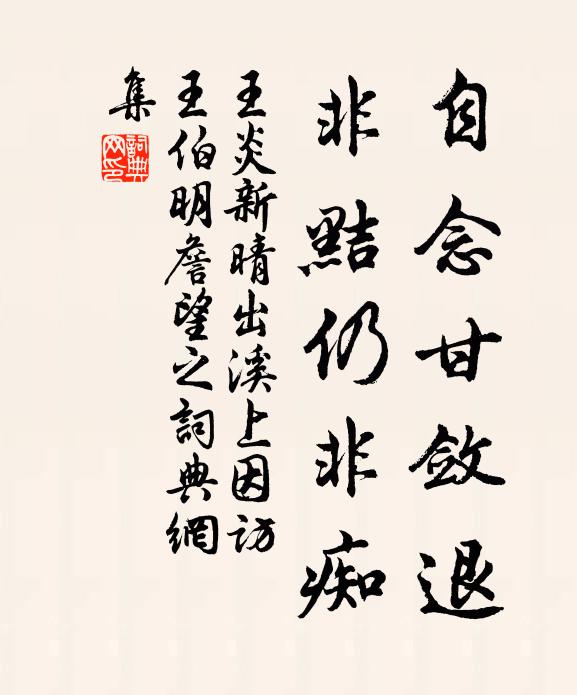 自念甘斂退
非黠仍非痴
王炎新晴出溪上因訪
王伯明詹望之詞典網
集
詞典
网印